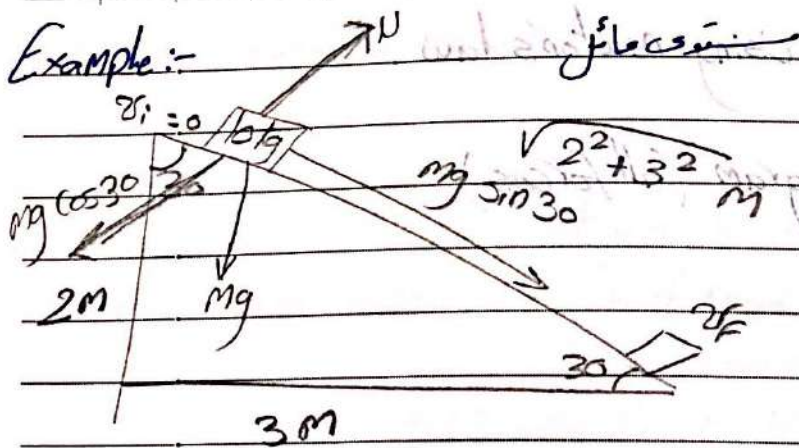 Example:- مستوى مائل
N
vᵢ = 0
10kg
√2² + 3² M
30
Mg cos 30
Mg sin 30
2M
Mg
30
v_F
3M